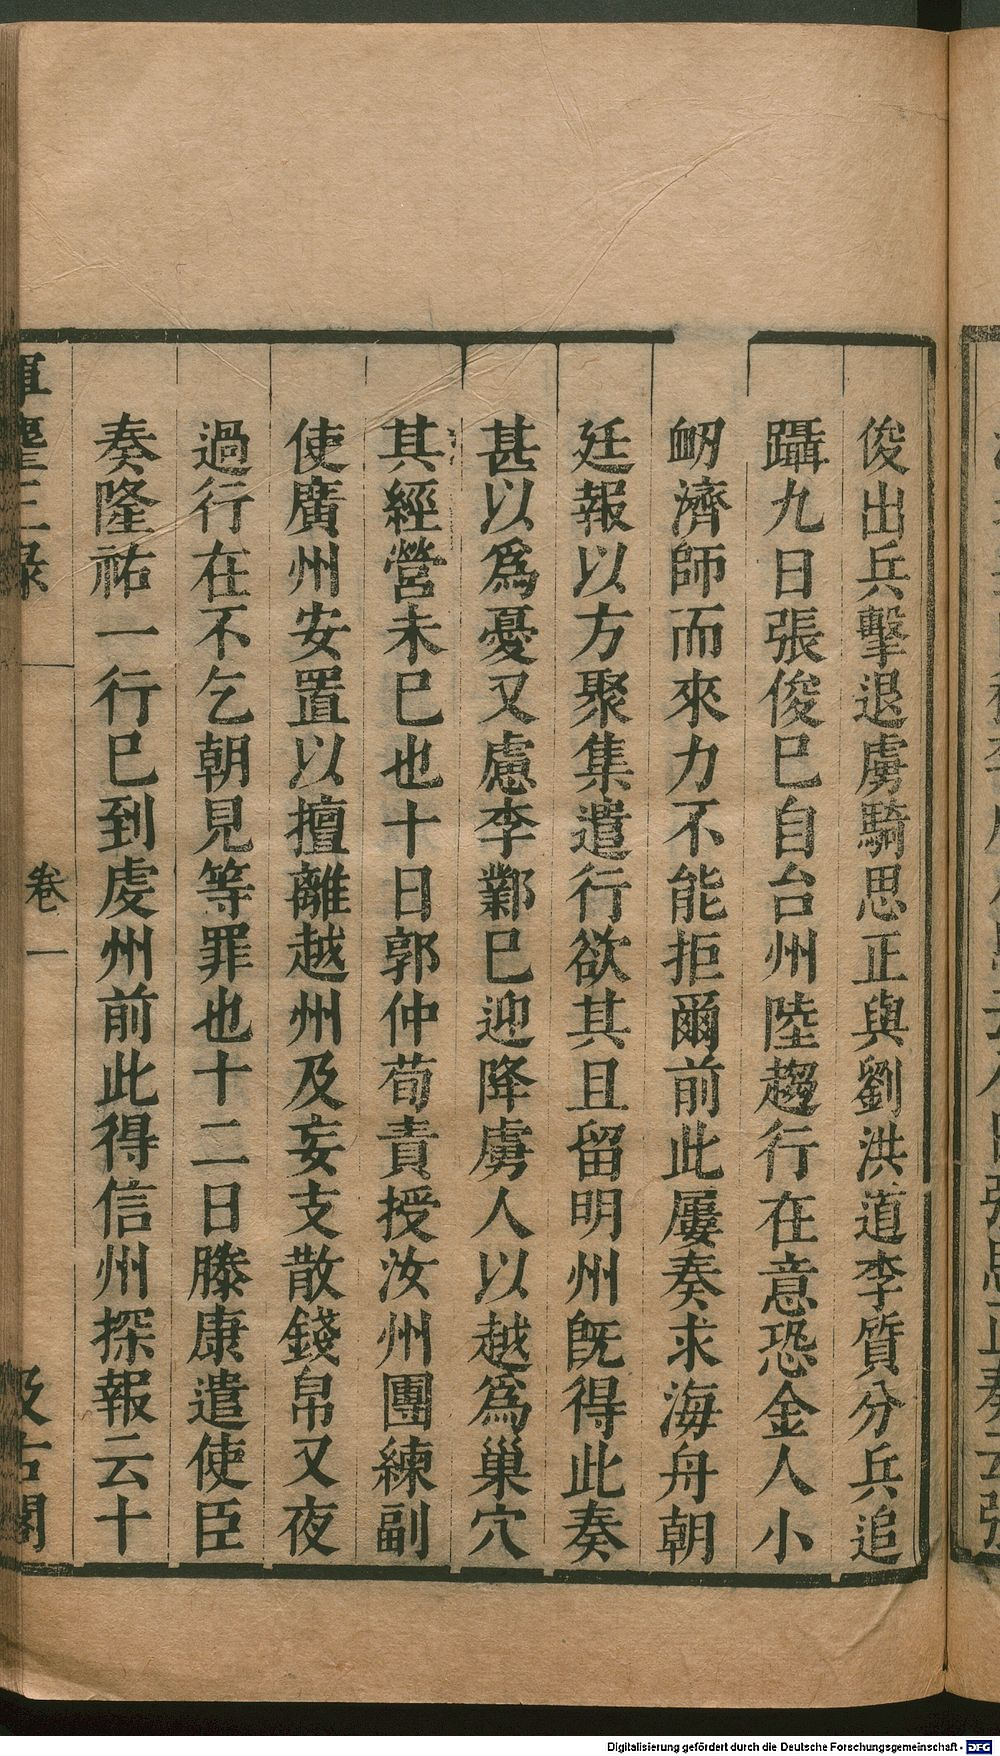 俊出兵擊退虜騎思正與劉洪道李質分兵追
躡九日張俊巳自台州陸趨行在意恐金人小
衂濟師而來力不能拒爾前此屢奏求海舟朝
廷報以方聚集遣行欲其且留明州旣得此奏
甚以爲憂又慮李鄴巳迎降虜人以越爲巢穴
其經營未巳也十日郭仲荀責授汝州團練副
使廣州安置以擅離越州及妄支散錢帛又夜
過行在不乞朝見等罪也十二日滕康遣使臣
奏隆祐一行巳到虔州前此得信州探報云十
卷一
汲古閣
Digitalisierung gefördert durch die Deutsche Forschungsgemeinschaft - DFG